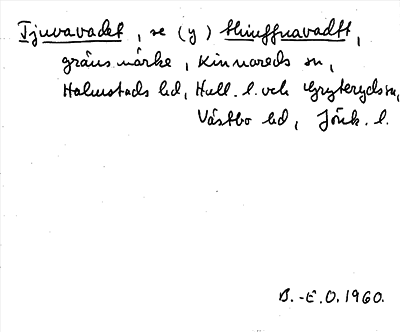 Tjuvavadet, se (y) thiuffnavadtt,
gränsmärke, Kinnareds sn,
Halmstads hd, Hall. l. och Gryteryds sn,
Västbo hd, Jönk. l.
B.-E.O. 1960.